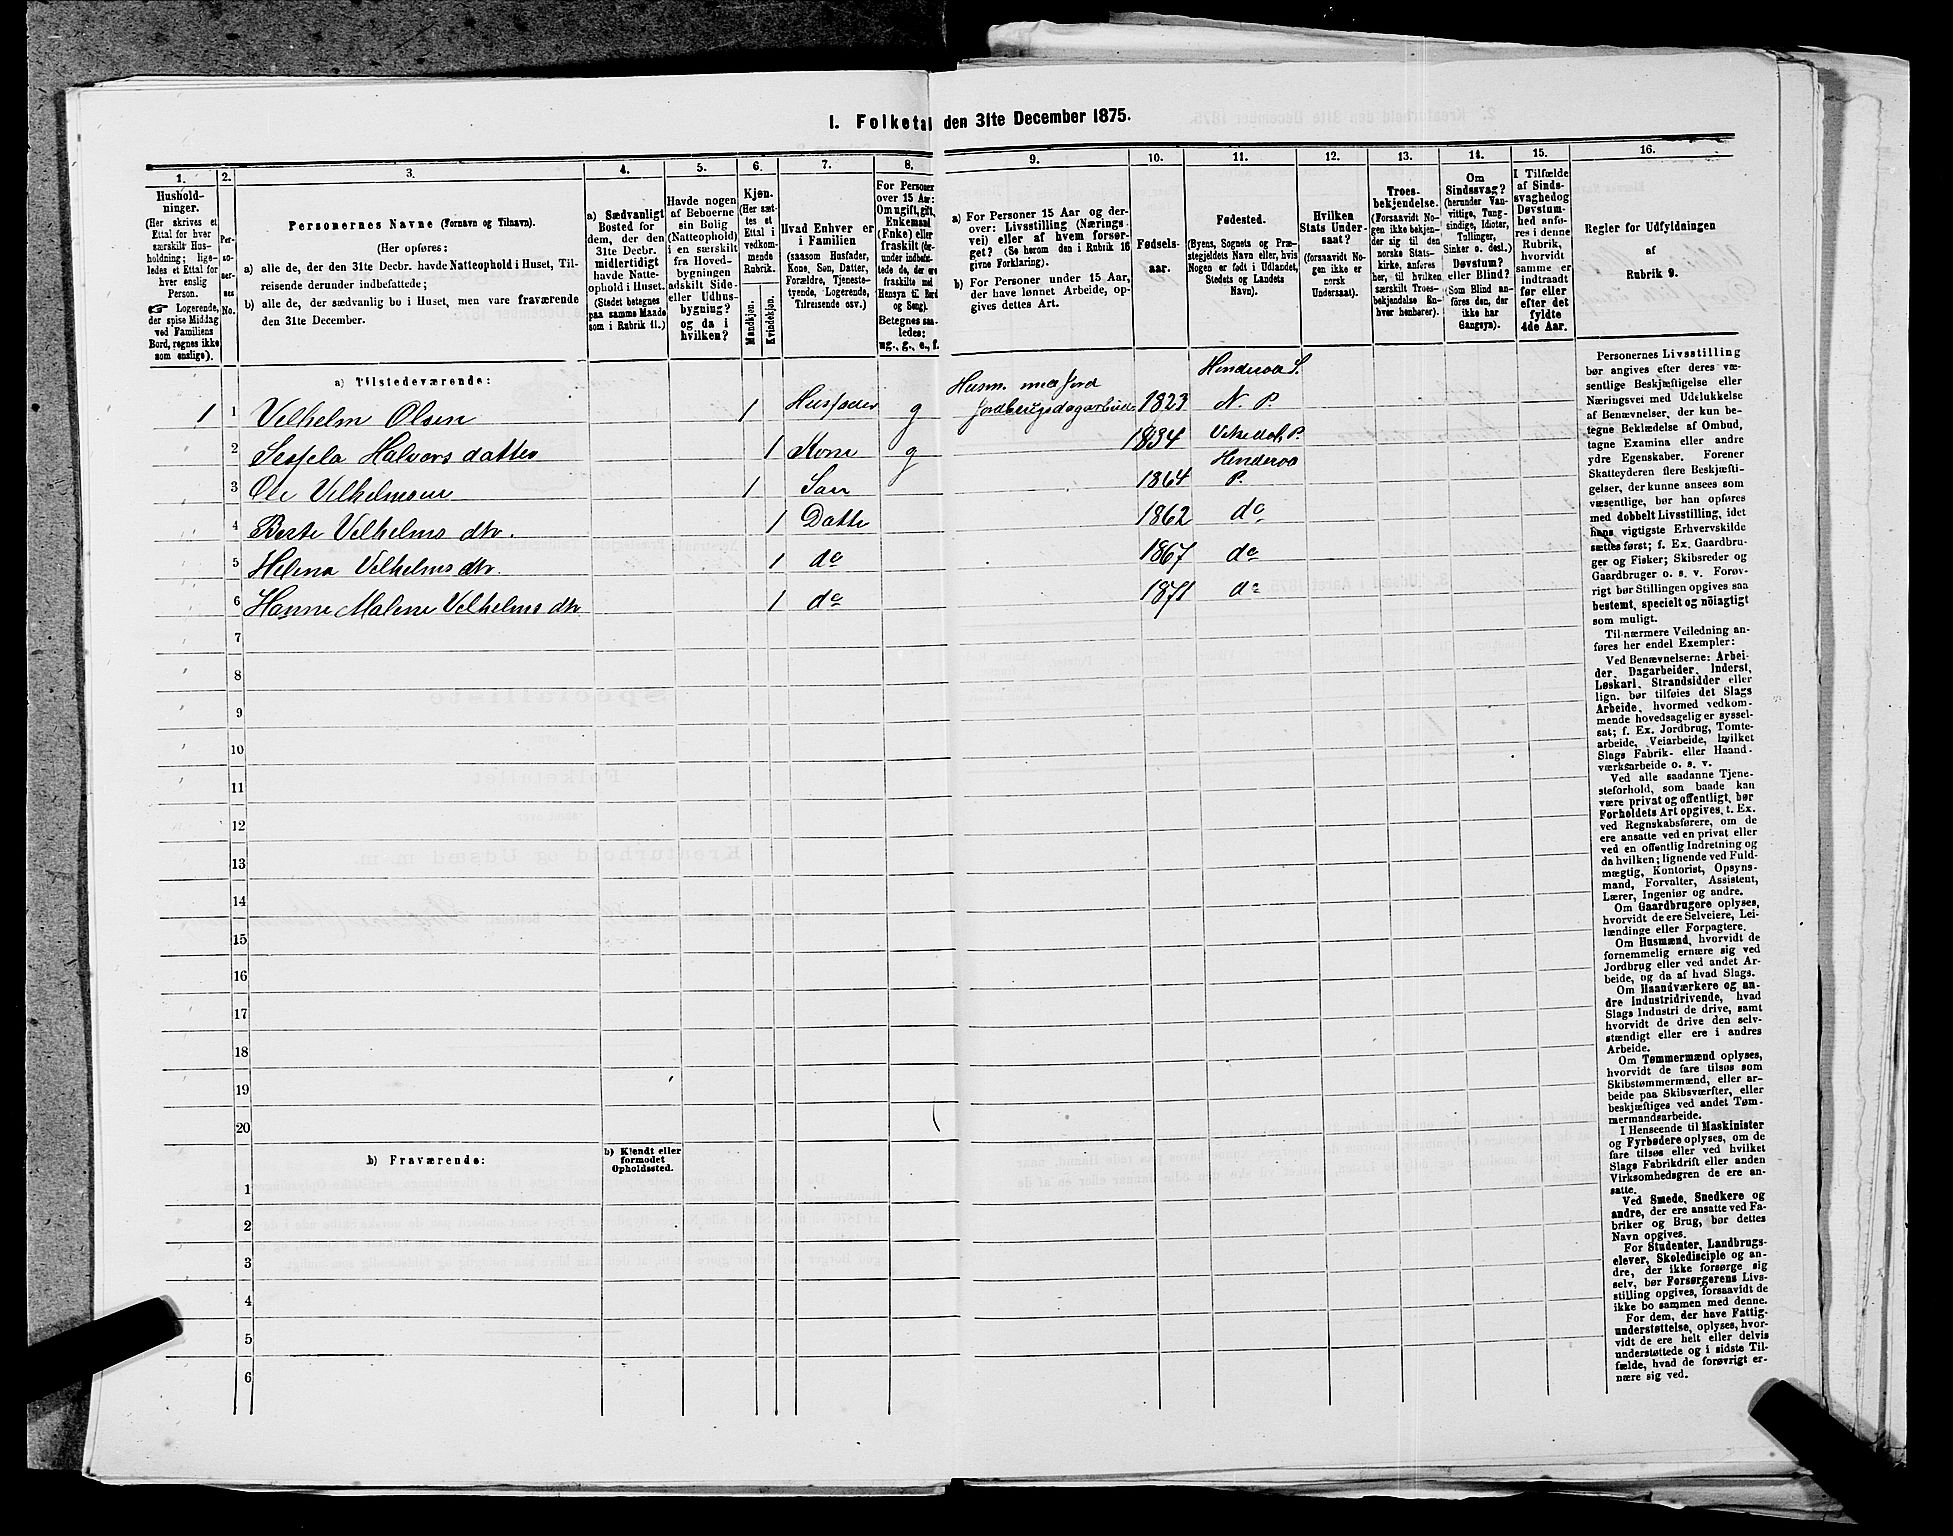 1. Folketal den 31te December 1875.
1.
2.
3.
4.
5.
6.
7.
8.
9.
10.
11.
12.
13.
14.
15.
16.
Hushold-
ninger.
(Her skrives et
Ettal for hver
særskilt Hus-
holdning; lige-
ledes et Ettal for
hver enslig
Person.
☞ Logerende,
der spise Middag
ved Familiens
Bord, regnes ikke
som enslige).
Per-
soner-
nes
No.
Personernes Navne (Fornavn og Tilnavn).
(Her opføres:
a) alle de, der den 31te Decbr. havde Natteophold i Huset, Til-
reisende derunder indbefattede;
b) alle de, der sædvanlig bo i Huset, men vare fraværende
den 31te December.
a) Sædvanligt
Bosted for
dem, der den
31te Decbr.
midlertidigt
havde Natte-
ophold i Huset.
(Stedet betegnes
paa samme Maade
som i Rubrik 11.)
Havde nogen
af Beboerne
sin Bolig
(Natteophold)
i en særskilt
fra Hoved-
bygningen
adskilt Side-
eller Udhus-
bygning?
og da i
hvilken?
Kjøn.
(Her sæt-
tes et
Ettal i
vedkom-
mende
Rubrik.
Mandkjøn.
Kvindekjøn.
Hvad Enhver er
i Familien
(saasom Husfader,
Kone, Søn, Datter,
Forældre, Tjeneste-
tyende, Logerende,
Tilreisende osv.)
For Personer
over 15 Aar:
Om ugift, gift,
Enkemand
(Enke) eller
fraskilt (der-
under indbefat-
tede de, der ere
fraskilte med
Hensyn til Bord
og Seng).
Betegnes saa-
ledes:
ug., g., e., f.
a) For Personer 15 Aar og der-
over: Livsstilling (Nærings-
vei) eller af hvem forsør-
get? (Se herom den i Rubrik 16
givne Forklaring).
b) For Personer under 15 Aar,
der have lønnet Arbeide, op-
gives dettes Art.
Fødsels-
aar.
Fødested.
(Byens, Sognets og Præ-
stegjeldets Navn eller, hvis
Nogen er født i Udlandet,
Stedets og Landets
Navn).
Hvilken
Stats Under-
saat?
(forsaavidt No-
gen ikke er
norsk
Undersaat).
Troes-
bekjendelse.
(Forsaavidt No-
gen ikke bekjen-
der sig til den
norske Stats-
kirke, anføres
her, til hvilken
særskilt Troes-
bekjendelse En-
hver henhører).
Om
Sindssvag?
(herunder Van-
vittige, Tung-
sindige, Idioter,
Tullinger,
Sinker o. desl.)
Døvstum?
eller Blind?
(Som Blind an-
føres den, der
ikke har
Gangsyn).
I Tilfælde
af Sinds-
svaghed og
Døvstum-
hed anfø-
res i denne
Rubrik,
hvorvidt
samme er
indtraadt
før eller
efter det
fyldte
4de Aar.
Regler for Udfyldningen
af
Rubrik 9.
a) Tilstedeværende:
1 1 Velhelm Olsen 1 Husfader g Husm. med Jord 1823 Hinderaa S. N. P.
2 Halvorsdatter 1 Kone g 1834 P.
3 Ole Velhelmsen 1 Søn 1864 Hinderaa P.
4 Velhelms dtr. 1 Datte 1862 do
5 Helena Velhelms dtr. 1 do 1867 do
6 Hanne Malene Velhelms dtr 1 do 1871 do
7
8
9
10
11
12
13
14
15
16
17
18
19
20
b) Fraværende:
b) Kjendt eller
formodet
Opholdssted.
1
2
3
4
5
6
Personernes Livsstilling
bør angives efter deres væ-
sentlige Beskjæftigelse eller
Næringsvei med Udelukkelse
af Benævnelser, der kun be-
tegne Beklædelse af Ombud,
tagne Examina eller andre
ydre Egenskaber. Forener
Skatteyderen flere Beskjæfti-
gelser, der kunne ansees som
væsentlige, bør han opføres
med dobbelt Livsstilling, idet
hans vigtigste Erhvervskilde
sættes først; f. Ex. Gaardbru-
ger og Fisker; Skibsreder og
Gaardbruger o. s. v. Forøv-
rigt bør Stillingen opgives saa
bestemt, specielt og nöiagtigt
som muligt.
Til nærmere Veiledning an-
føres her endel Exempler:
Ved Benævnelserne: Arbei-
der, Dagarbeider, Inderst,
Løskarl, Strandsidder eller
lign. bør tilføies det Slags
Arbeide, hvormed vedkom-
mende hovedsagelig er syssel-
sat; f. Ex. Jordbrug, Tomte-
arbeide, Veiarbeide, hvilket
Slags Fabrik- eller Haand-
værksarbeide o. s. v.
Ved alle saadanne Tjene-
steforhold, som baade kan
være privat og offentligt, bør
Forholdets Art opgives, t. Ex.
ved Regnskabsførere, om de
ere ansatte ved en privat eller
ved en offentlig Indretning og
da hvilken; lignende ved Fuld-
mægtig, Kontorist, Opsyns-
mand, Forvalter, Assistent,
Lærer, Ingeniør og andre.
Om Gaardbrugere oplyses,
hvorvidt de ere Selveiere, Lei-
lændinge eller Forpagtere.
Om Husmænd, hvorvidt de
fornemmelig ernære sig ved
Jordbrug eller ved andet Ar-
beide, og da af hvad Slags.
Om Haandværkere og an-
dre Industridrivende, hvad
Slags Industri de drive, samt
hvorvidt de drive den selv-
stændigt eller ere i andres
Arbeide.
Om Tømmermænd oplyses,
hvorvidt de fare tilsøs som
Skibstømmermænd, eller ar-
beide paa Skibsværfter, eller
beskjæftiges ved andet Tøm-
mermandsarbeide.
I Henseende til Maskinister
og Fyrbødere oplyses, om de
fare tilsøs eller ved hvilket
Slags Fabrikdrift eller anden
Virksomhedsgren de ere an-
satte.
Ved Smede, Snedkere og
andre, der ere ansatte ved Fa-
briker og Brug, bør dettes
Navn opgives.
For Studenter, Landbrugs-
elever, Skoledisciple og an-
dre, der ikke forsørge sig
selv, bør Forsørgerens Livs-
stilling opgives, forsaavidt de
ikke bo sammen med denne.
For dem, der have Fattig-
understøttelse, oplyses, hvor-
vidt de ere helt eller delvis
understøttede og i sidste Til-
fælde, hvad de forøvrigt er-
nære sig ved.